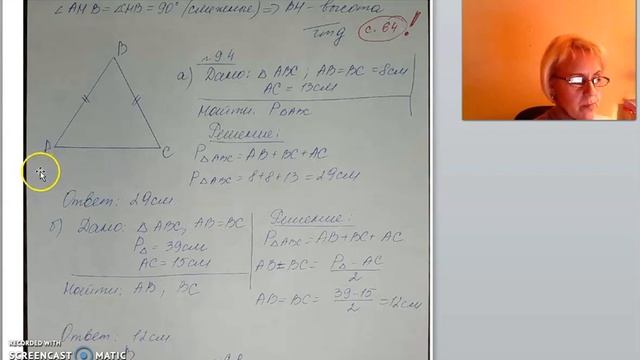 ∠AMB = ∠HMB = 90° (смежные) ⇒ BH – высота
чтд
с. 64!
№94
а) Дано: △ABC; AB=BC=8см
AC = 13см
Найти: P△ABC
Решение:
P△ABC = AB+BC+AC
P△ABC = 8+8+13 = 29см
B
A
C
Ответ: 29см
б) Дано: △ABC, AB=BC
P△ = 39см
AC = 15см
Найти: AB, BC
Решение:
P△ABC = AB+BC+AC
AB=BC = (P△ – AC)/2
AB = BC = (39–15)/2 = 12см
Ответ: 12см
RECORDED WITH
SCREENCAST MATIC